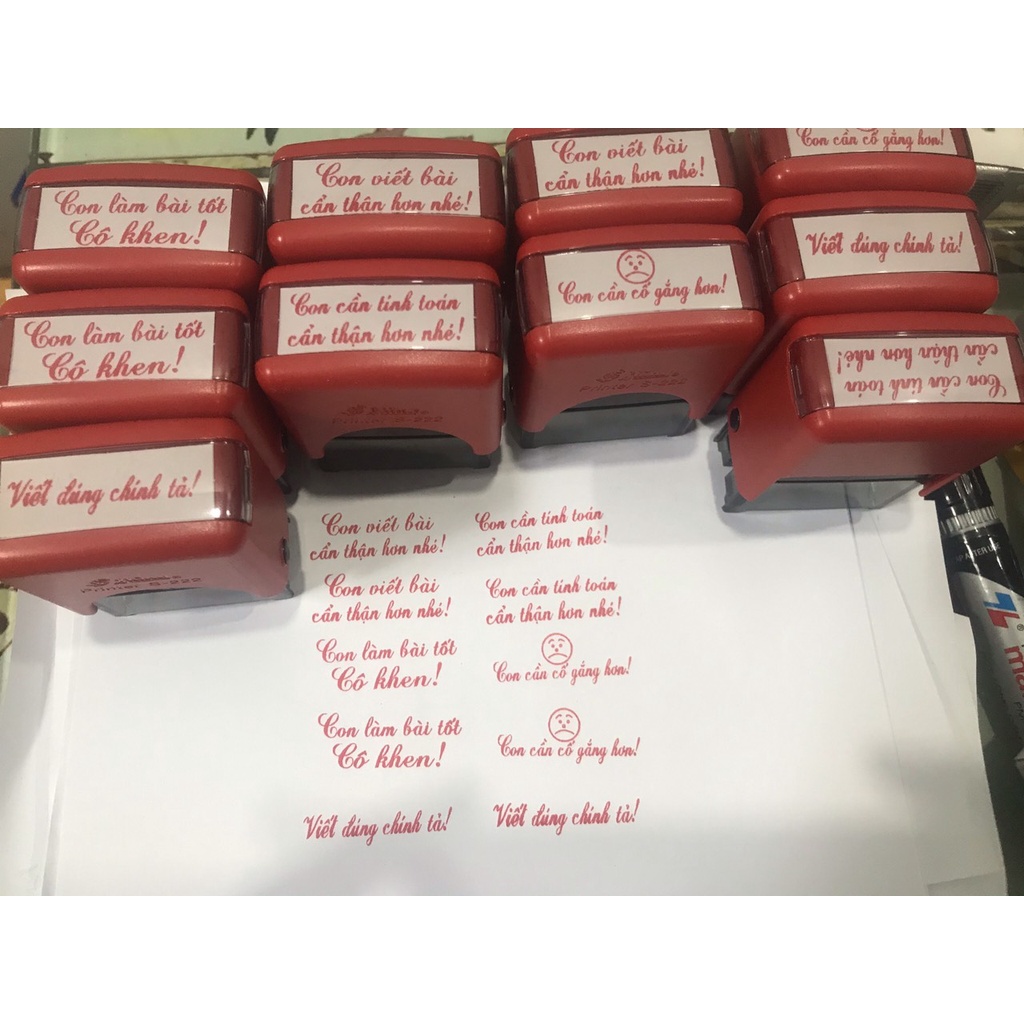 Con cần cố gắng hơn!
Con viết bài
cẩn thận hơn nhé!
Con viết bài
cẩn thận hơn nhé!
Con làm bài tốt
Cô khen!
Viết đúng chính tả!
Con cần cố gắng hơn!
Con cần tính toán
cẩn thận hơn nhé!
Con làm bài tốt
Cô khen!
Con cần tính toán
cẩn thận hơn nhé!
Viết đúng chính tả!
Shiny
Printer S-222
Shiny
Printer S-222
Shiny
Printer S-222
Con viết bài
cẩn thận hơn nhé!
Con cần tính toán
cẩn thận hơn nhé!
Con viết bài
cẩn thận hơn nhé!
Con cần tính toán
cẩn thận hơn nhé!
Con làm bài tốt
Cô khen!
Con cần cố gắng hơn!
Con làm bài tốt
Cô khen!
Con cần cố gắng hơn!
Viết đúng chính tả!
Viết đúng chính tả!